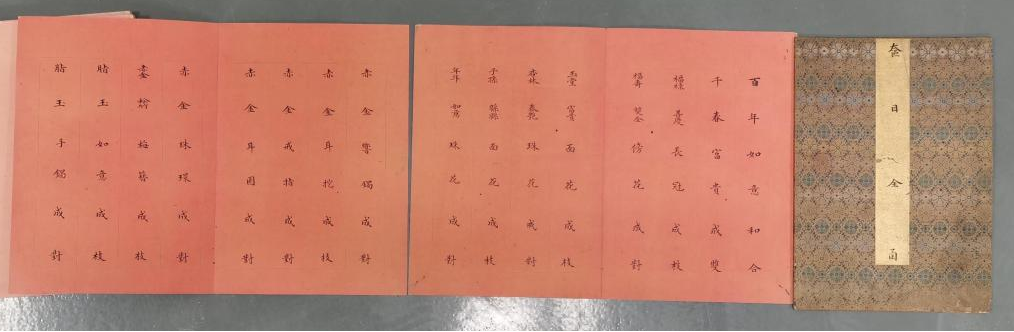 奩目全函
百年如意和合
千春富貴成雙
福祿善慶長冠成枝
福壽雙全傍花成對
玉堂富貴面花成枝
杏林春苑珠花成對
子孫緜緜面花成枝
年年如意珠花成對
赤金響鐲成對
赤金耳挖成枝
赤金戒指成對
赤金耳圈成對
赤金珠環成對
赤金梅簪成枝
脂玉如意成枝
脂玉手鐲成對